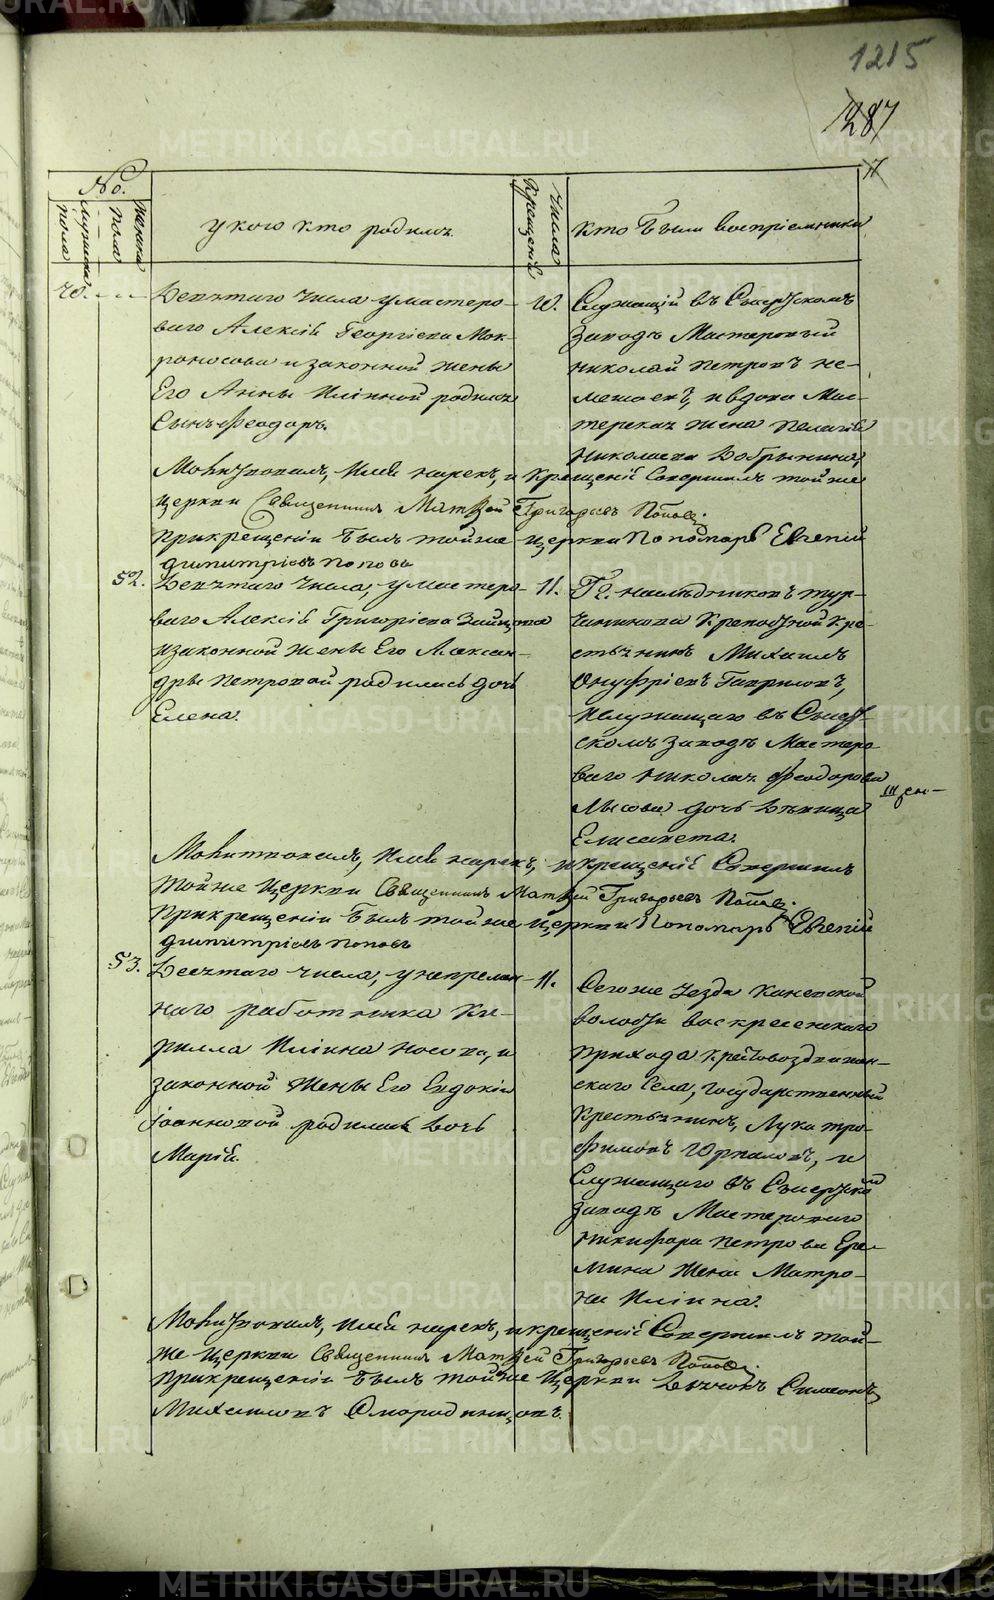 1215
287
No.
Мужеска пола
Женска пола
у кого кто родился
Числа Крещенiя
кто были воспрiемники
Девятаго числа у мастеро-
ваго Алексiя Георгiева Мок-
роносова и законной жены
Его Анны Илiиной родился
Сынъ Феодоръ.
10. Служащiй въ Сысертскомъ
заводѣ Мастеровый
Николай Петровъ
и вдова Мас-
жена Пелагiя
Николаева
Молитвовалъ, Имя нарекъ, и Крещенiе Совершилъ той же
церкви Священникъ Матвей Григорьевъ Поповъ.
При крещенiи былъ той же церкви Пономарь Евгенiй
Димитрiевъ Поповъ
52. Девятаго числа, у мастеро-
ваго Алексiя Григорiева Зайцева
и законной жены Его Алексан-
дры Петровой родилась дочь
Елена.
11. Гг. наследниковъ Тур-
чанинова Крепостной Кре-
стьянинъ Михаилъ
Онуфрiевъ Гавриловъ,
и служащаго въ Сысерт-
скомъ заводѣ Мастеро-
ваго Николая Феодорова
Лысова дочь девица
Елисавета.
Молитвовалъ, Имя нарекъ, и Крещенiе Совершилъ
той же церкви Священникъ Матвей Григорьевъ Поповъ.
При крещенiи былъ той же церкви Пономарь Евгенiй
Димитрiевъ Поповъ
53. Десятаго числа, у непремен-
наго работника Ки-
рилла Илiина Носова, и
законной жены Его Евдокiи
Iоанновой родилась дочь
Марiя.
11. Сего же уезда
волости Воскресенскаго
прихода Крестовоздвижен-
скаго Села, государственный
Крестьянинъ, Лука Тро-
фимовъ и
Служащаго въ Сысертскомъ
заводѣ Мастероваго
Никифора Петрова Ере-
мина жена Матро-
на Илiина.
Молитвовалъ, Имя нарекъ, и крещенiе Совершилъ той-
же церкви Священникъ Матвей Григорьевъ Поповъ.
При крещенiи былъ той же церкви Дьячокъ Симеонъ
Михаиловъ Смородинцовъ.
METRIKI.GASO-URAL.RU